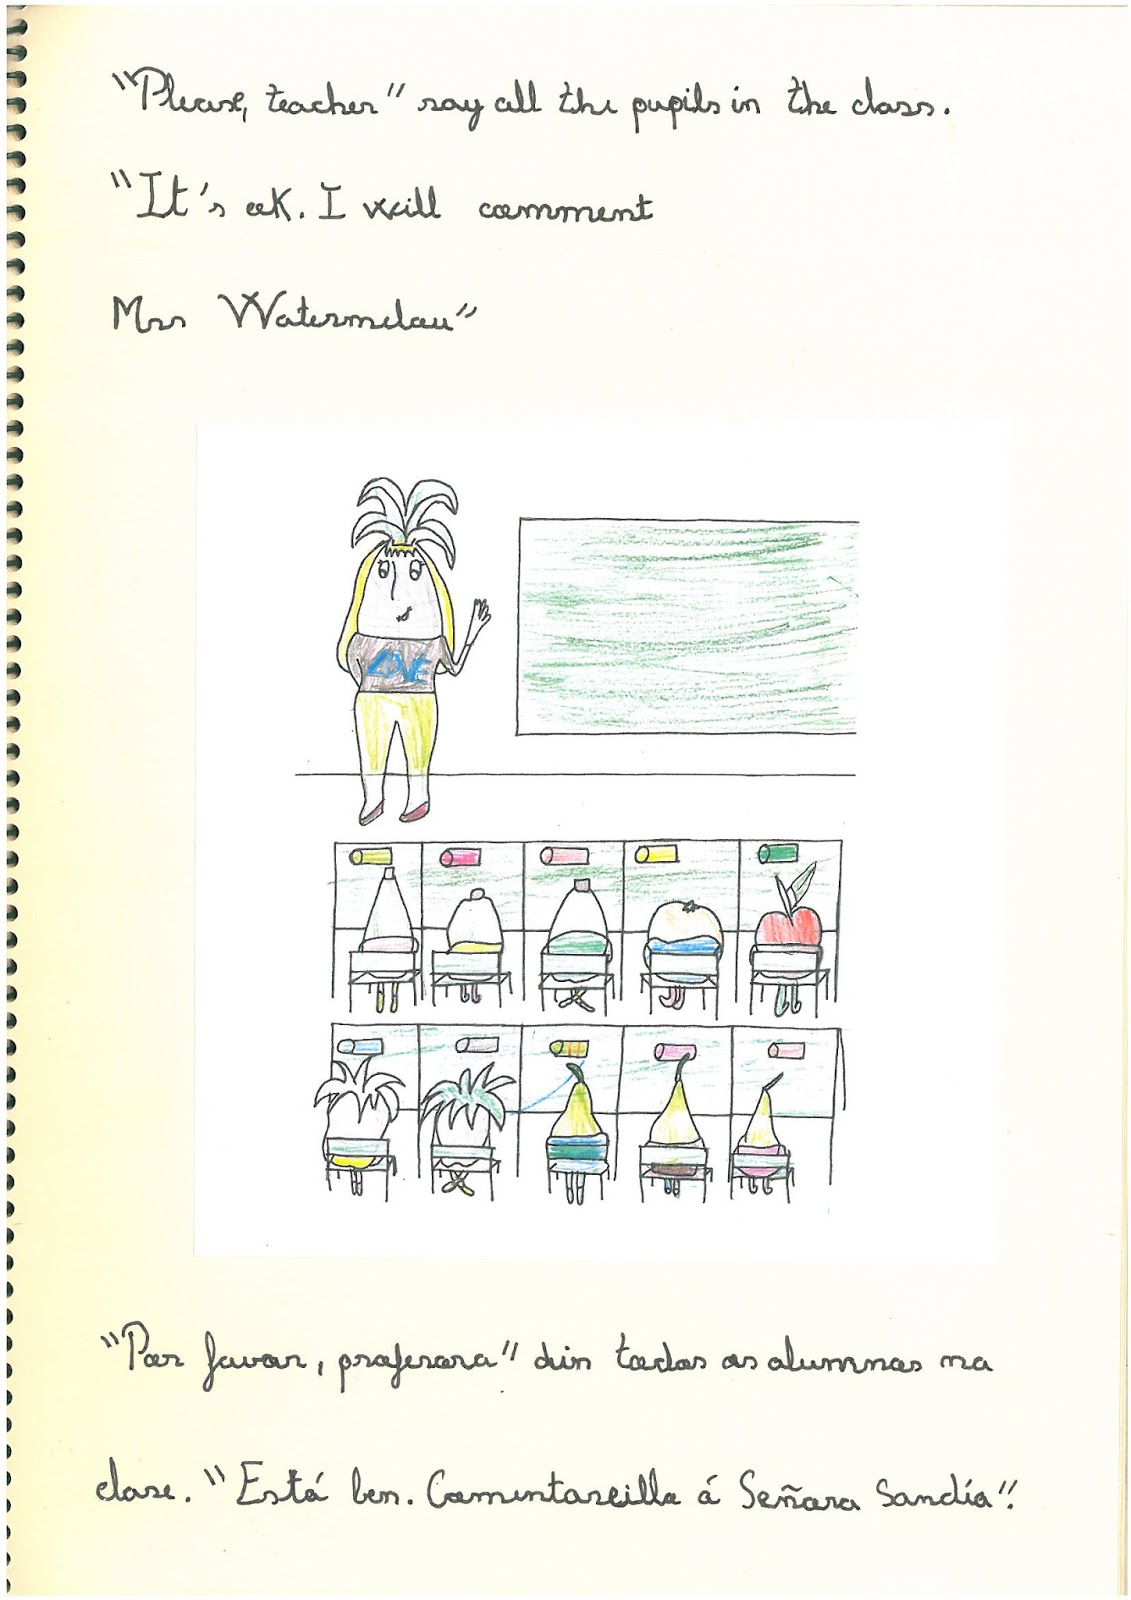 "Please, teacher" say all the pupils in the class.
"It's ok. I will comment
Mrs Watermelon"
LOVE
"Por favor, profesora" din todos os alumnos na
clase. "Está ben. Comentareillo á Señora Sandía".